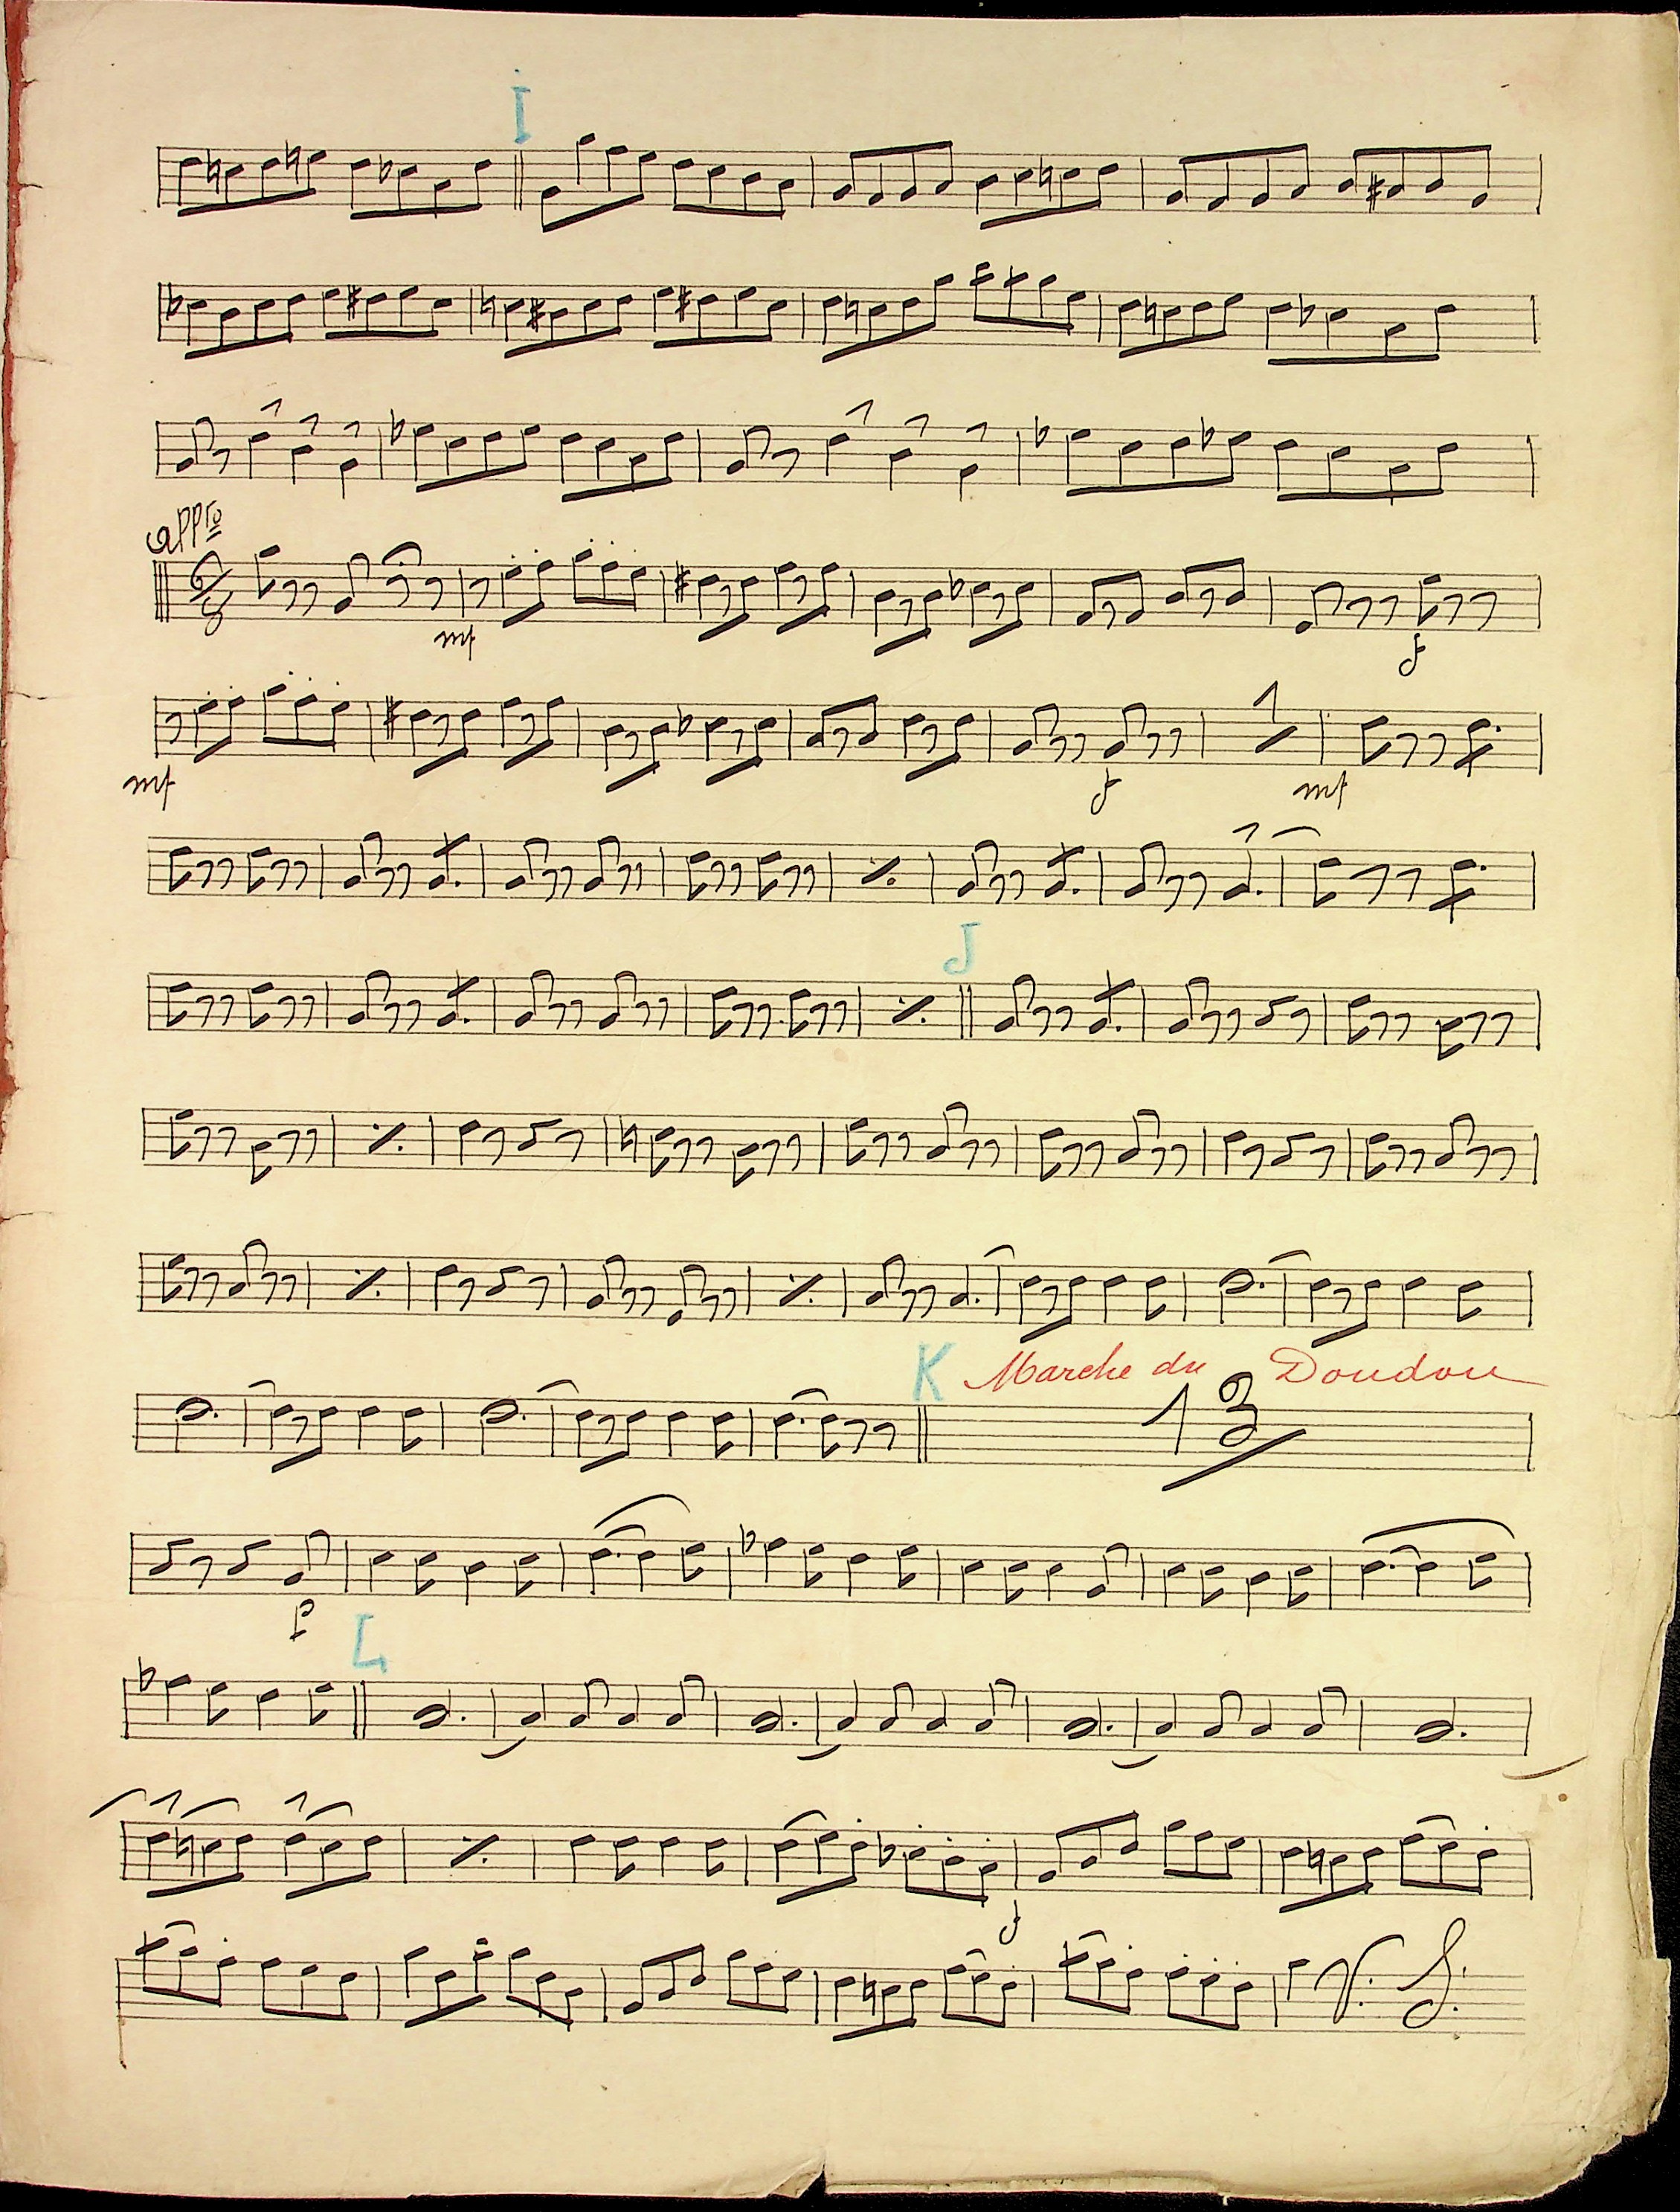 I
allro
6/8
mf
f
mf
f
1
mf
J
K Marche du Doudou
13
p
L
f
V. S.